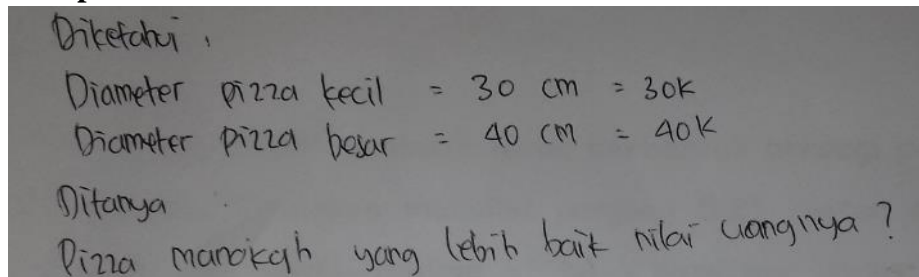 Diketahui,
Diameter pizza kecil = 30 cm = 30K
Diameter pizza besar = 40 cm = 40K
Ditanya
Pizza manakah yang lebih baik nilai uangnya?